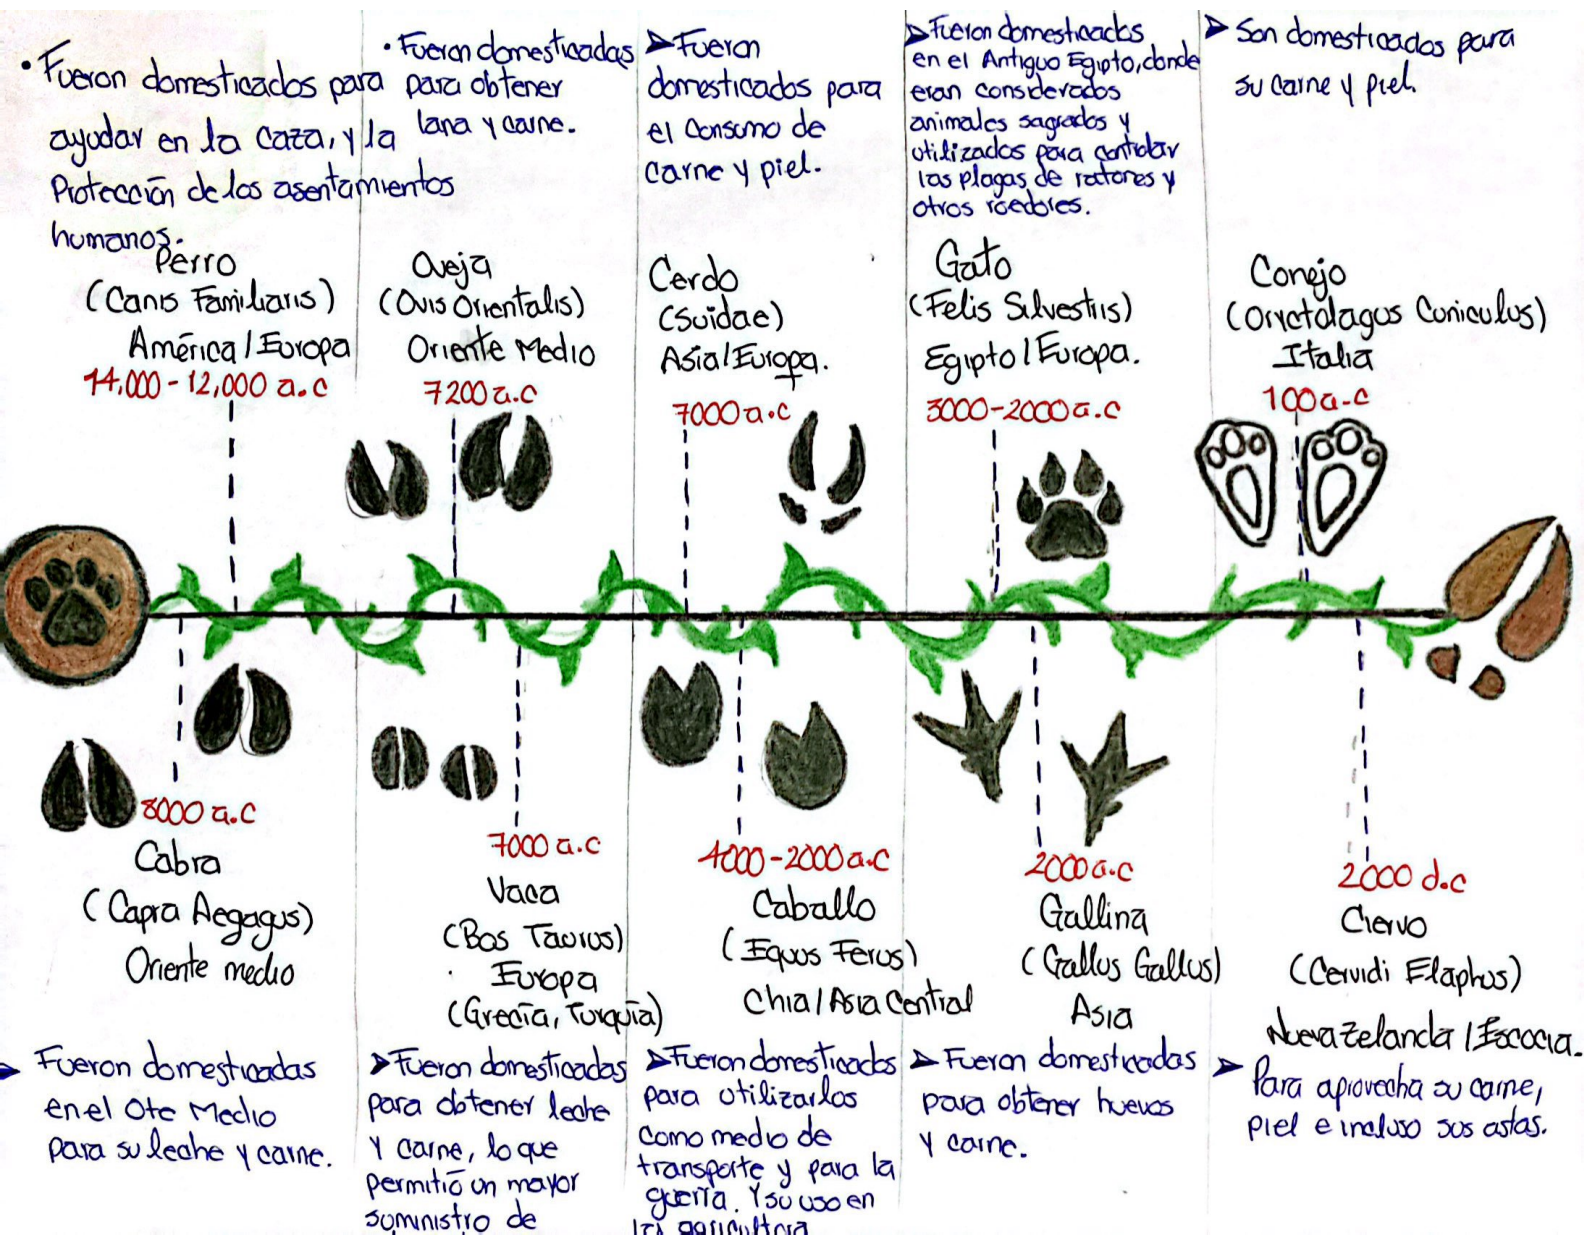 • Fueron domesticados para
ayudar en la caza, y la
Protección de los asentamientos
humanos.
Perro
(Canis Familiaris)
América / Europa
14.000 - 12,000 a.c
• Fueron domesticadas
para obtener
lana y carne.
Oveja
(Ovis Orientalis)
Oriente Medio
7200 a.c
➤ Fueron
domesticados para
el consumo de
carne y piel.
Cerdo
(Suidae)
Asia/Europa.
7000 a.c
➤ Fueron domesticados
en el Antiguo Egipto, donde
eran considerados
animales sagrados y
utilizados para controlar
las plagas de ratones y
otros roedores.
Gato
(Felis Silvestris)
Egipto / Europa.
3000-2000 a.c
➤ Son domesticados para
su carne y piel.
Conejo
(Oryctolagus Cuniculus)
Italia
100 a.c
8000 a.c
Cabra
(Capra Aegagus)
Oriente medio
Fueron domesticadas
en el Ote Medio
para su leche y carne.
7000 a.c
Vaca
(Bos Taurus)
Europa
(Grecia, Turquía)
➤ Fueron domesticadas
para obtener leche
y carne, lo que
permitió un mayor
suministro de
4000-2000 a.c
Caballo
(Equus Ferus)
Chia / Asia Central
➤ Fueron domesticados
para utilizarlos
como medio de
transporte y para la
guerra. Y su uso en
la agricultura
2000 a.c
Gallina
(Gallus Gallus)
Asia
➤ Fueron domesticadas
para obtener huevos
y carne.
2000 d.c
Ciervo
(Cervidi Elaphus)
Nueva Zelanda / Escocia.
➤ Para aprovecha su carne,
piel e incluso sus astas.